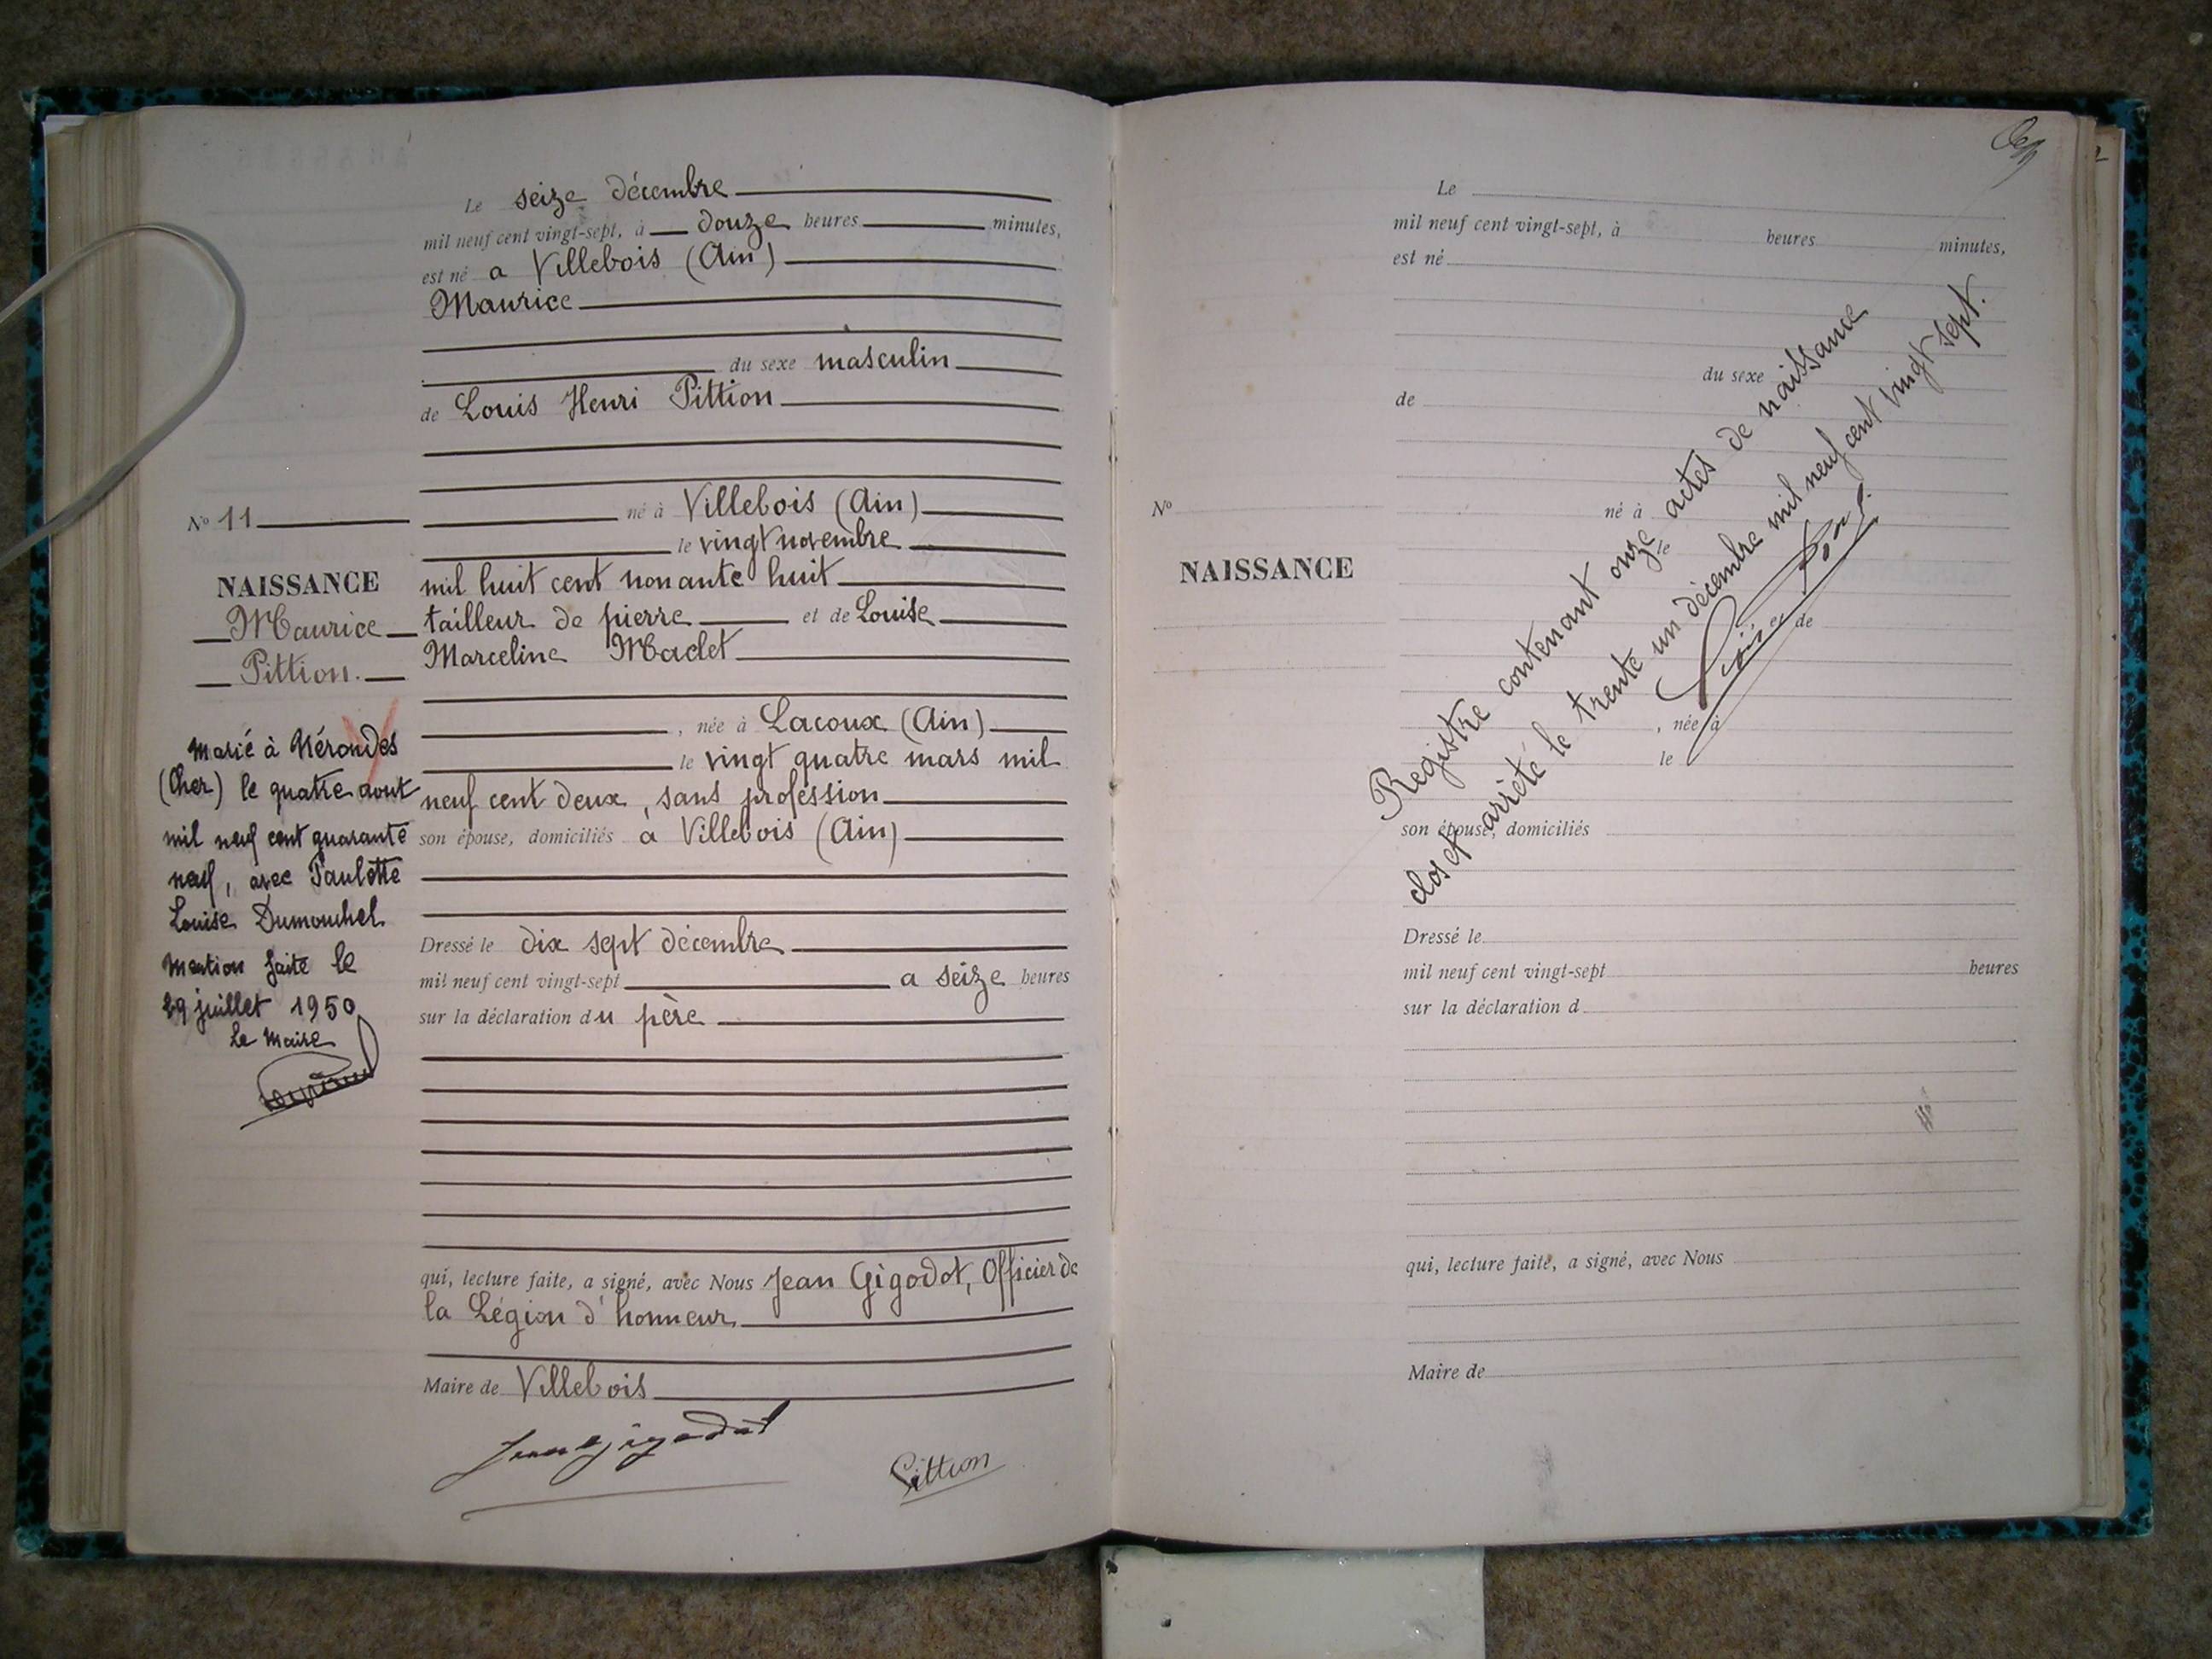 Le seize décembre
mil neuf cent vingt-sept, à douze heures minutes,
est né a Villebois (Ain)
Maurice
du sexe masculin
de Louis Henri Pittion
né à Villebois (Ain)
le vingt novembre
mil huit cent nonante huit
tailleur de pierre et de Louise
Marceline Maclet
, née à Lacoux (Ain)
le vingt quatre mars mil
neuf cent deux, sans profession
son épouse, domiciliés à Villebois (Ain)
Dressé le dix sept décembre
mil neuf cent vingt-sept a seize heures
sur la déclaration du père
qui, lecture faite, a signé, avec Nous Jean Gigodot, Officier de
la Légion d'honneur,
Maire de Villebois
Jean Gigodot
Pittion
N° 11
NAISSANCE
Maurice
Pittion.
Marié à Nérondes
(Cher) le quatre aout
mil neuf cent quarante
neuf, avec Paulette
Louise Dumouchel
Mention faite le
29 juillet 1950
Le Maire
Le
mil neuf cent vingt-sept, à heures minutes,
est né
du sexe
de
né à
le
et de
, née à
le
son épouse, domiciliés
Dressé le
mil neuf cent vingt-sept heures
sur la déclaration d
qui, lecture faite, a signé, avec Nous
Maire de
N°
NAISSANCE
Registre contenant onze actes de naissance
clos et arrêté le trente un décembre mil neuf cent vingt sept.